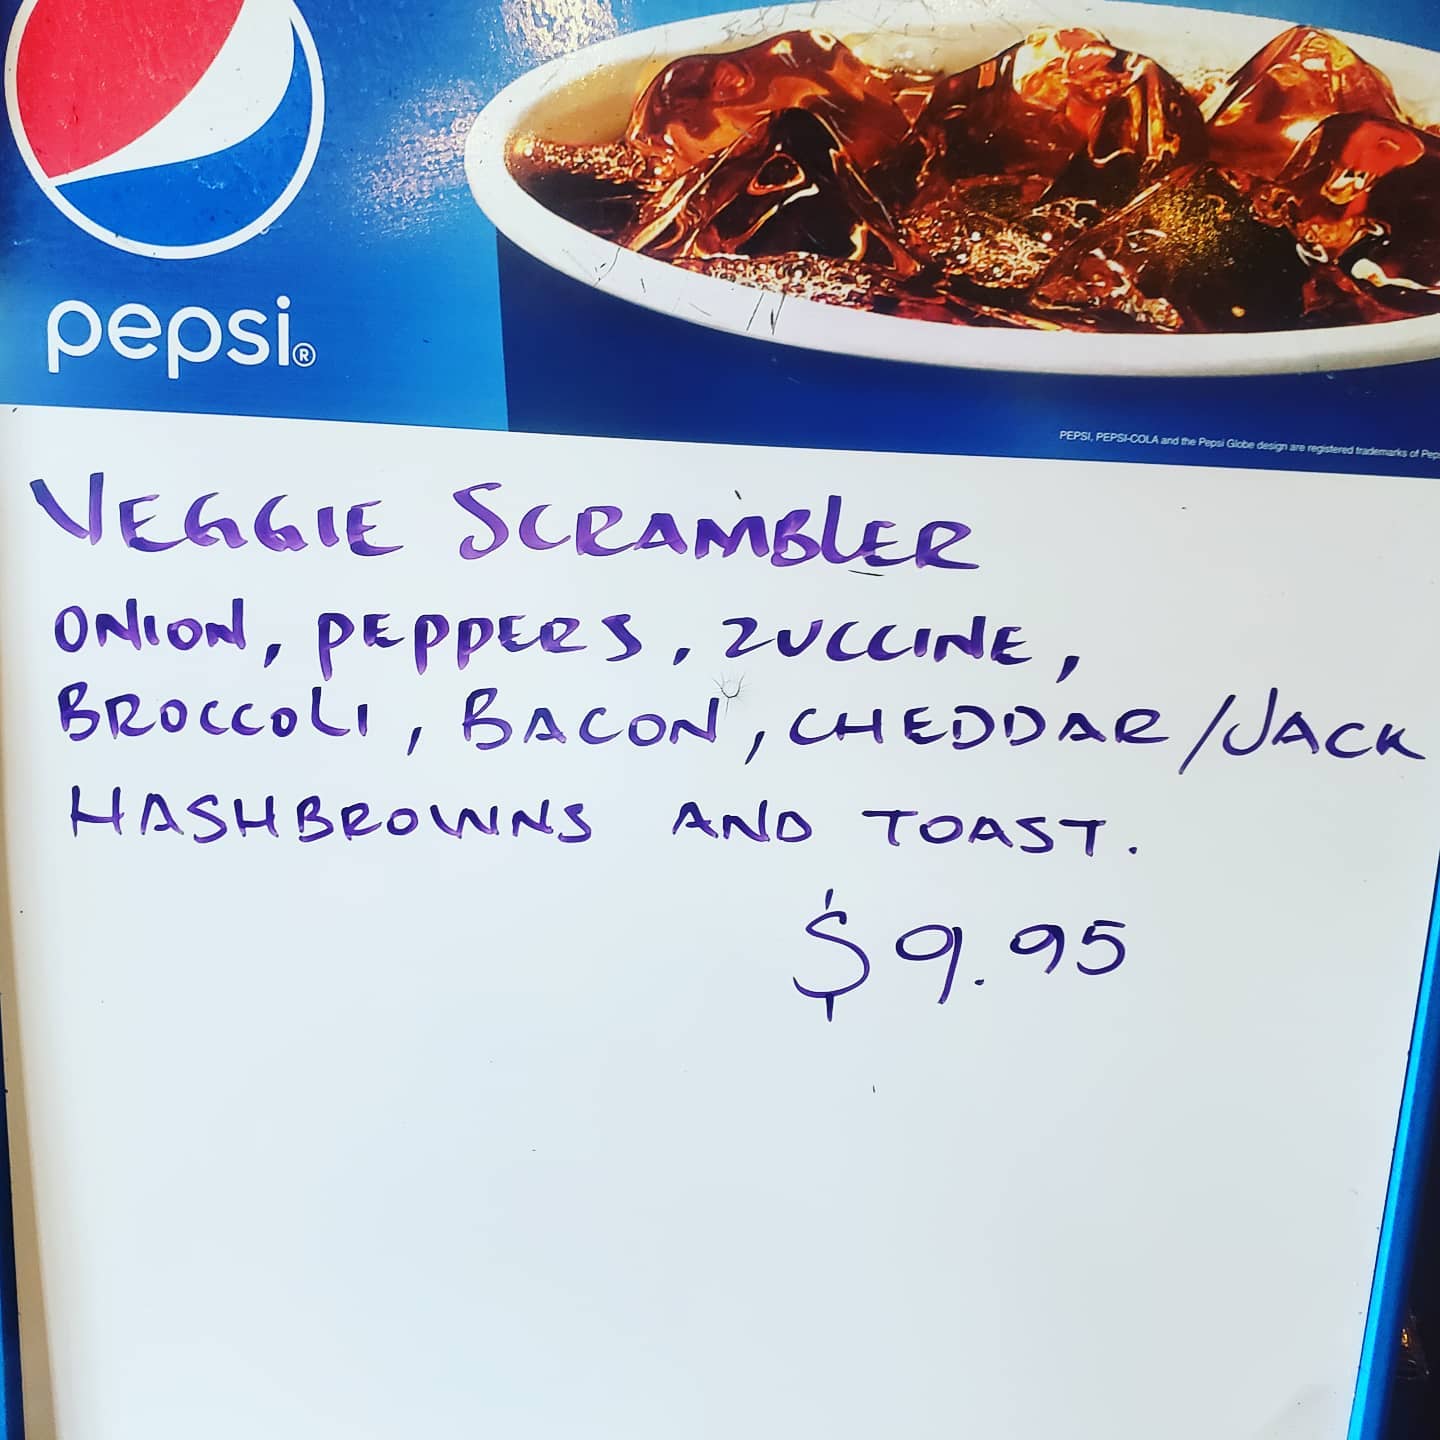 pepsi®
PEPSI, PEPSI-COLA and the Pepsi Globe design are registered trademarks of
VEGGIE SCRAMBLER
ONION, PEPPERS, ZUCCINE,
BROCCOLI, BACON, CHEDDAR/JACK
HASHBROWNS AND TOAST.
$9.95